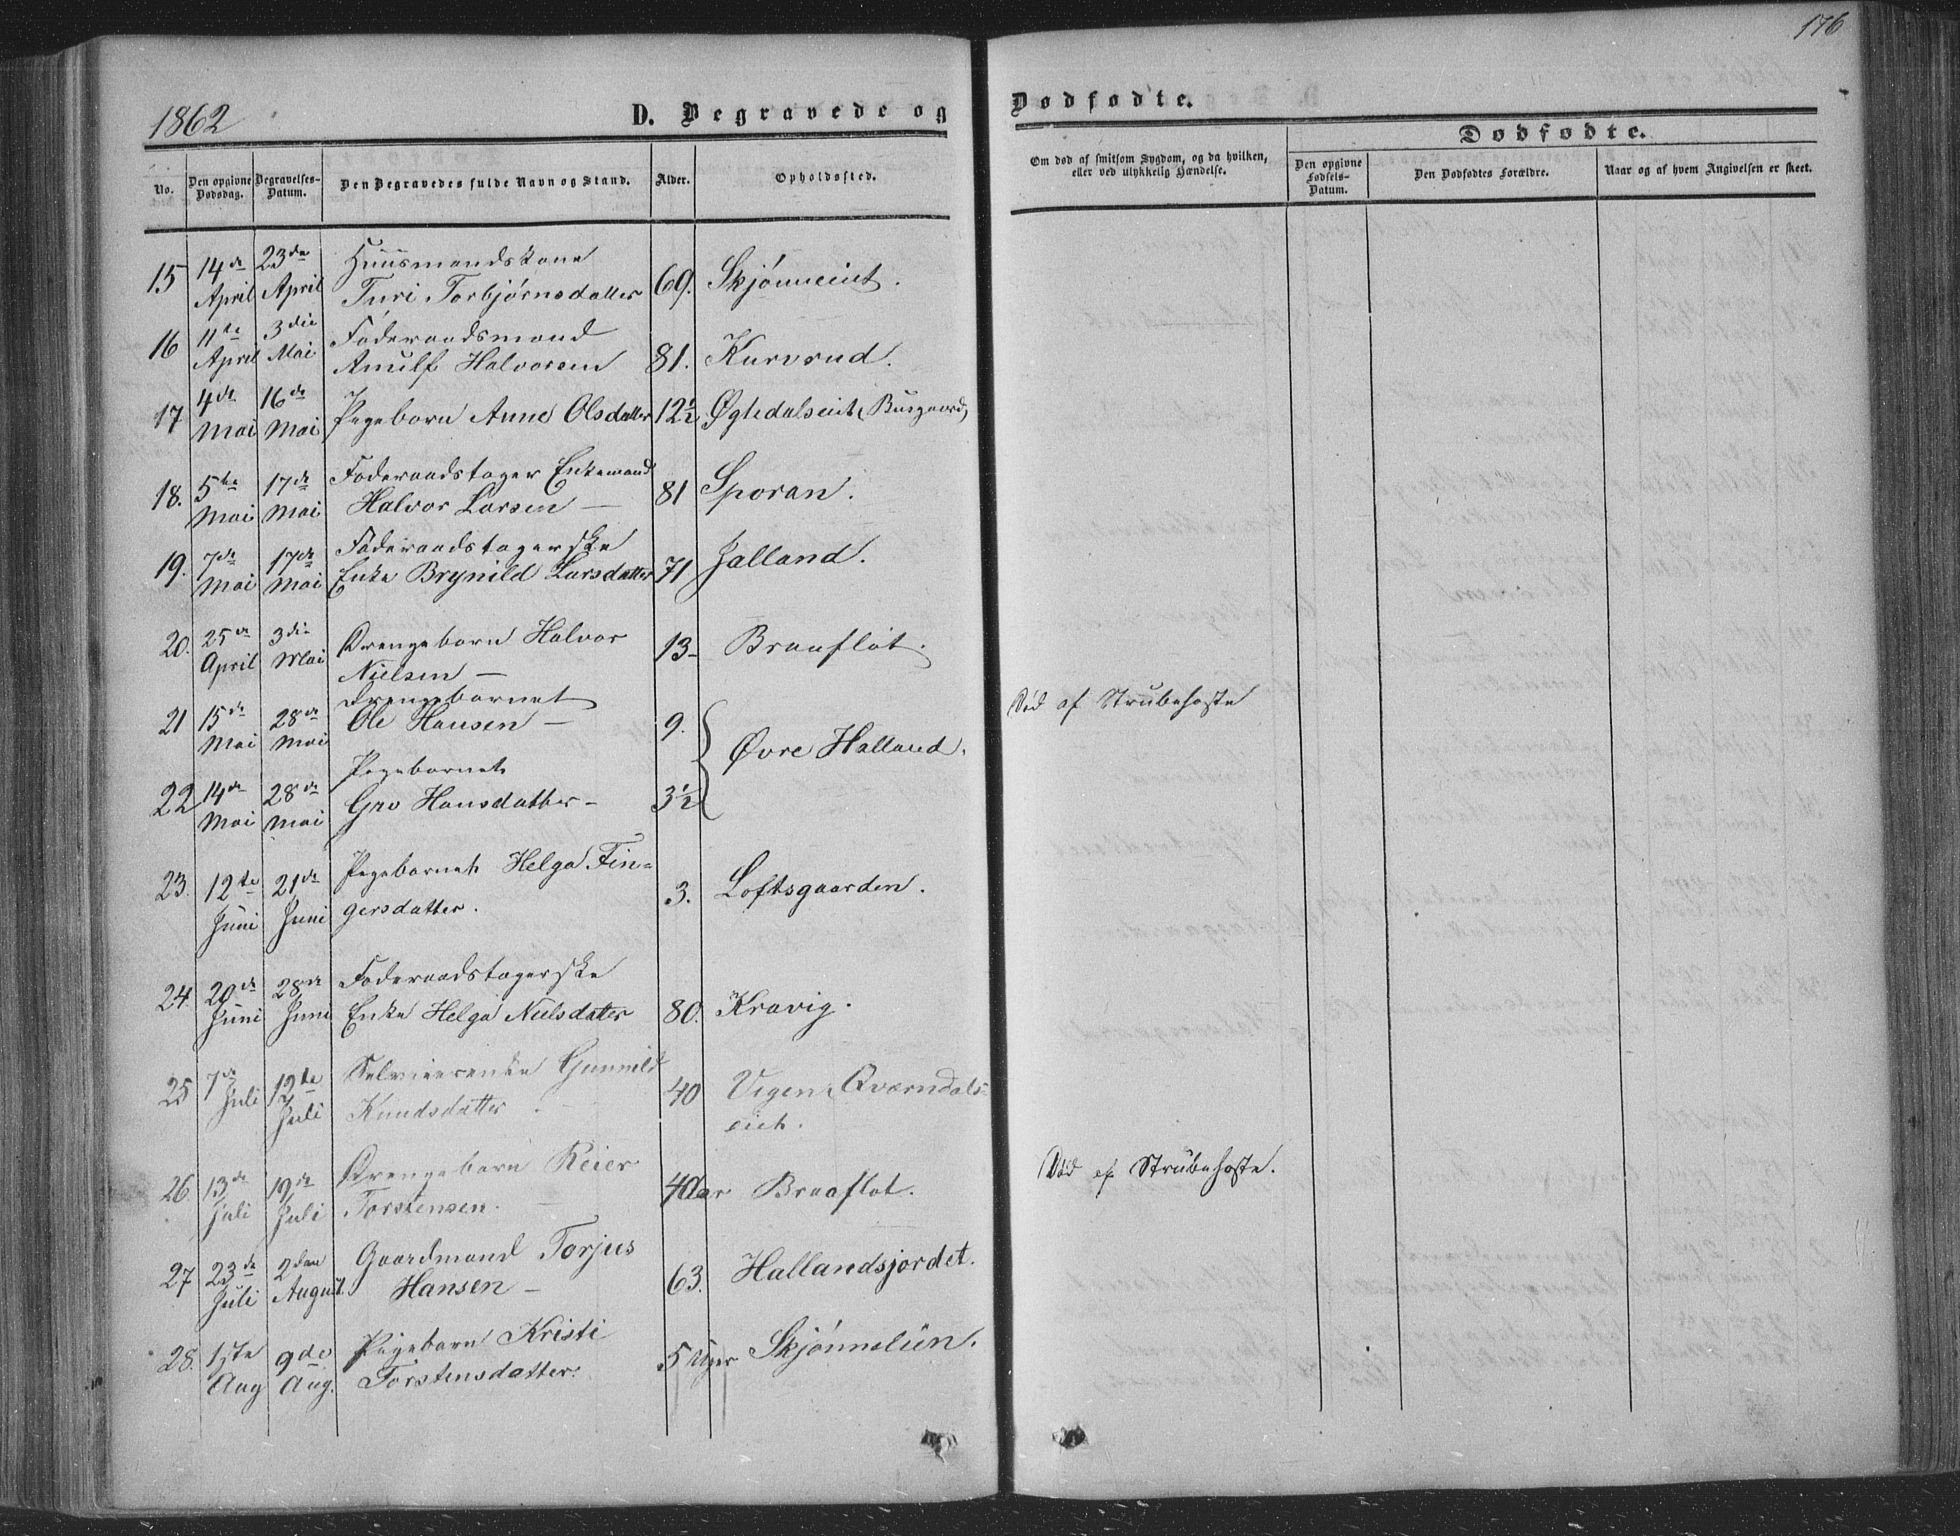 176
1862
D. Begravede og Dødfødte.
Dødfødte.
No.
Den opgivne Dødsdag.
Begravelses-Datum.
Den Begravedes fulde Navn og Stand.
Alder.
Opholdssted.
Om død af smitsom Sygdom, og da hvilken, eller ved ulykkelig Hændelse.
Den opgivne Fødsels-Datum.
Den Dødfødtes Forældre.
Naar og af hvem Angivelsen er skeet.
15 14de April 23de April Huusmandskone
Turi Torbjørnsdatter 69.
16 11te April 3die Mai Föderaadsmand
Arnulf Halvorsen 81. Kurvrud.
17 4de Mai 16de Mai Pigebarn Anne Olsdatter 12½
18. 5te Mai 17de Mai Föderaadstager Enkemand
Halvor Larsen — 81 Sporan.
19. 7de Mai 17de Mai Föderaadstagerske
Enke Brynild Larsdatter 71 Jalland.
20. 25de April 3die Mai Drengebarn Halvor
Nielsen — 13 - Braaflöt.
21 15de Mai 28de Mai Drengebarnet
Ole Hansen — 9. Død af Strubehoste
Øvre Halland.
22 14de Mai 28de Mai Pigebarnet
Gro Hansdatter - 3½
23. 12te Juni 21de Juni Pigebarnet Helga Fin-
gersdatter. 3. Loftsgaarden.
24. 20de Juni 28de Juni Föderaadstagerske
Enke Helga Nielsdatter 80. Kravig.
25 7de Juli 12te Juli Selveierenke Gunnild
Knudsdatter. 40 Vigen, Qværndals-
eiet.
26 13de Juli 19de Juli Drengebarn Reier
Torstensen. 4 Aar Braaflot. Død af Strubehoste.
27 23de Juli 2den August Gaardmand Torjus
Hansen — 63. Hallandsjordet.
28. 1ste Aug 9de Aug. Pigebarn Kristi
Torstensdatter. 5 Uger Skjönneliin.